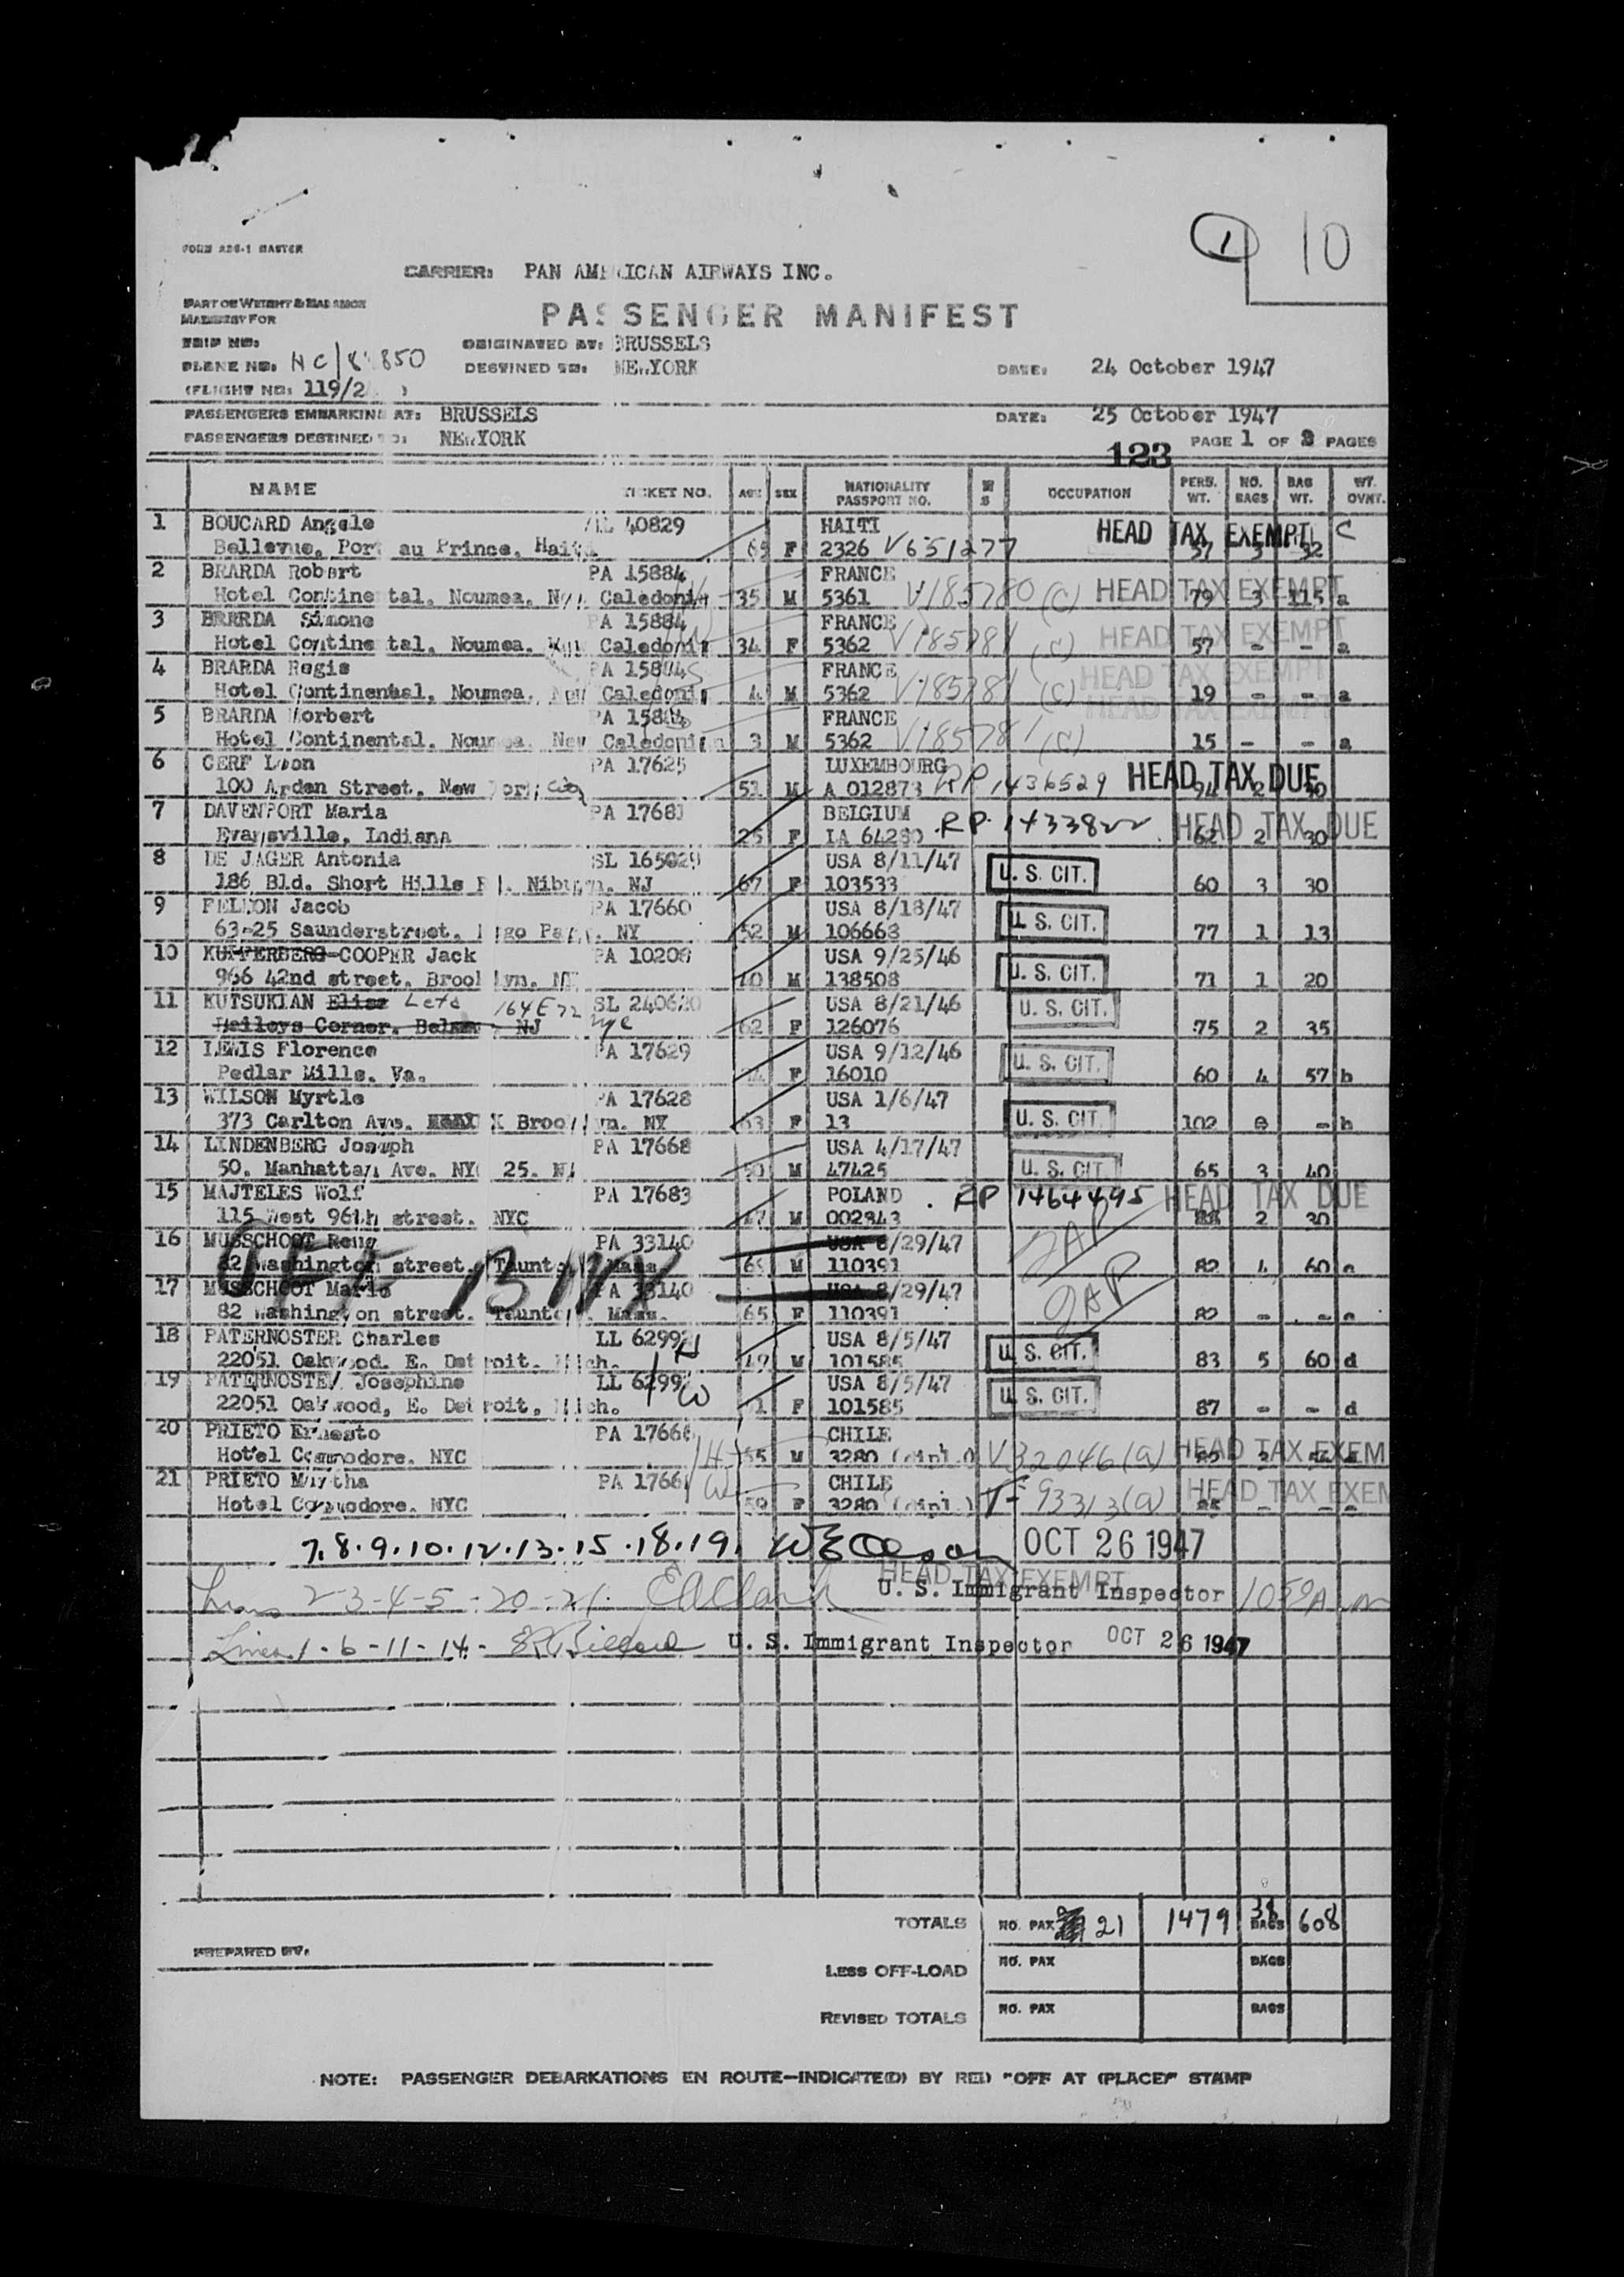 1 10
FORM 226-1 MASTER
CARRIER: PAN AMERICAN AIRWAYS INC.
PART OF WEIGHT & BALANCE
MANIFEST FOR
PASSENGER MANIFEST
TRIP NO:
ORIGINATED AT: BRUSSELS
PLANE NO: NC/88850
DESTINED TO: NEWYORK
DATE: 24 October 1947
(FLIGHT NO: 119/2 )
PASSENGERS EMBARKING AT: BRUSSELS
DATE: 25 October 1947
PASSENGERS DESTINED TO: NEWYORK
123 PAGE 1 OF 3 PAGES
NAME TICKET NO. AGE SEX NATIONALITY PASSPORT NO. M S OCCUPATION PERS. WT. NO. BAGS BAG WT. WT. OVNT.
1 BOUCARD Angele 40829 HAITI HEAD TAX EXEMPT C
Bellevue, Port au Prince, Haiti 65 F 2326 V651277 57 3 52
2 BRARDA Robert PA 15884 FRANCE
Hotel Continental, Noumea, New Caledonia 35 M 5361 V185780 (C) HEAD TAX EXEMPT 79 3 115 a
3 BRARDA Simone PA 15884 FRANCE
Hotel Continental, Noumea, New Caledonia 34 F 5362 V185781 (C) HEAD TAX EXEMPT 57 - - a
4 BRARDA Regis PA 15884 FRANCE
Hotel Continental, Noumea, New Caledonia 4 M 5362 V185781 (C) HEAD TAX EXEMPT 19 - - a
5 BRARDA Norbert PA 15884 FRANCE HEAD TAX EXEMPT
Hotel Continental, Noumea, New Caledonian 3 M 5362 V185781 (C) 15 - - a
6 CERF Leon PA 17625 LUXEMBOURG
100 Arden Street, New York City 51 M A 012873 RP 1436529 HEAD TAX DUE 94 2 30
7 DAVENPORT Maria PA 17681 BELGIUM
Evansville, Indiana 25 F LA 64280 RP 1433822 HEAD TAX DUE 62 2 30
8 DE JAGER Antonia SL 165029 USA 8/11/47
186 Bld. Short Hills NJ 67 F 103533 U. S. CIT. 60 3 30
9 FELLON Jacob PA 17660 USA 8/18/47
63-25 Saunderstreet, Rego Park, NY 52 M 106668 U. S. CIT. 77 1 13
10 KUPFERBERG-COOPER Jack PA 10206 USA 9/25/46
966 42nd street, Brooklyn, NY 40 M 138508 U. S. CIT. 71 1 20
11 KUTSUKIAN Elise 164 E 22 SL 240620 USA 8/21/46
Baileys Corner, NJ nyc 62 F 126076 U. S. CIT. 75 2 35
12 LEWIS Florence PA 17629 USA 9/12/46
Pedlar Mills, Va. F 16010 U. S. CIT. 60 4 57 b
13 WILSON Myrtle PA 17628 USA 1/6/47
373 Carlton Ave. Brooklyn, NY 63 F 13 U. S. CIT. 102 - b
14 LINDENBERG Joseph PA 17668 USA 4/17/47
50, Manhattan Ave. NYC 25, NY 50 M 47425 U. S. CIT. 65 3 40
15 MAJTELES Wolf PA 17683 POLAND RP 1464495 HEAD TAX DUE
115 West 96th street, NYC 47 M 002343 88 2 30
16 MUSSCHOOT Remy PA 33140 USA 8/29/47
82 Washington street, Taunton, Mass. M 110391 GAP 82 4 60
OFF BNX
17 MUSSCHOOT Marie PA 33140 USA 8/29/47
82 Washington street, Taunton, Mass. 65 F 110391 GAP 82 - -
18 PATERNOSTER Charles LL 62992 H USA 8/5/47
22051 Oakwood, E. Detroit, Mich. 49 M 101585 U. S. CIT. 83 5 60 d
19 PATERNOSTER Josephine LL 62992 W USA 8/5/47
22051 Oakwood, E. Detroit, Mich. F 101585 U. S. CIT. 87 - - d
20 PRIETO Ernesto PA 17666 H CHILE
Hotel Commodore, NYC 55 M 3280 (dipl.) V32046(a) HEAD TAX EXEM
21 PRIETO Martha PA 1766 W CHILE
Hotel Commodore, NYC 59 F 3280 (dipl.) 93313(a) HEAD TAX EXEM
7.8.9.10.12.13.15.18.19. OCT 26 1947
HEAD TAX EXEMPT
Lines 2-3-4-5-20-21. E A Clark U. S. Immigrant Inspector
Lines 1-6-11-14- U. S. Immigrant Inspector OCT 26 1947
TOTALS NO. PAX 21 1479 38 BAGS 608
PREPARED BY:
LESS OFF-LOAD NO. PAX BAGS
REVISED TOTALS NO. PAX BAGS
NOTE: PASSENGER DEBARKATIONS EN ROUTE-INDICATE(D) BY RED "OFF AT (PLACE)" STAMP